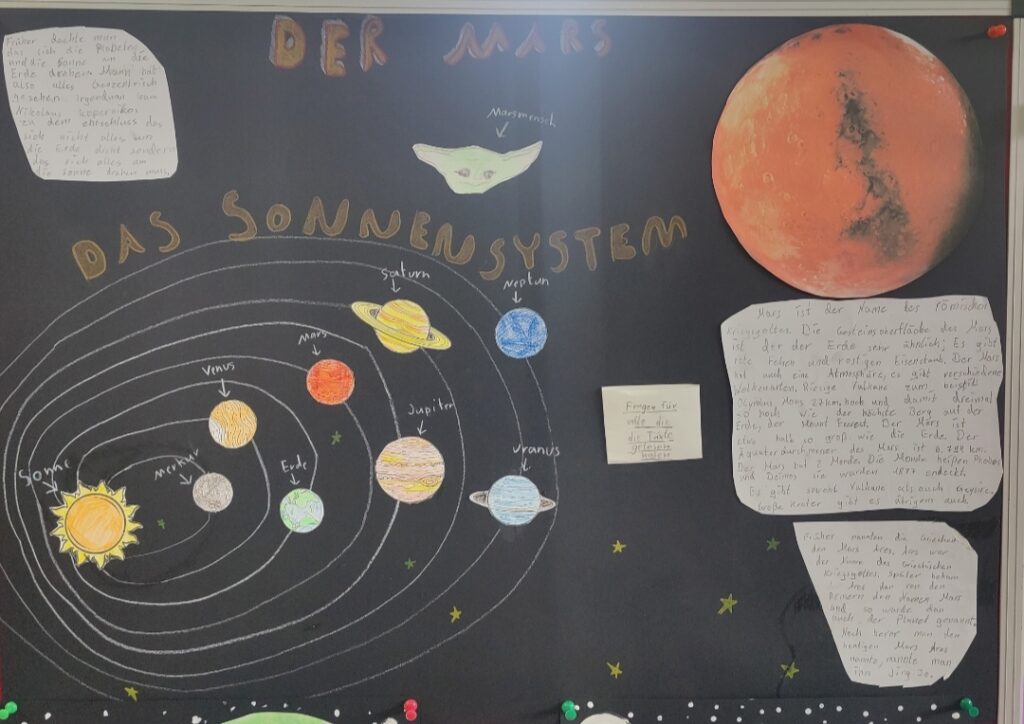 DER MARS
Früher dachte man
das sich die Planeten
und die Sonne um die
Erde drehen. Mann hat
also alles Geozentrisch
gesehen. Irgendwan kam
Nikolaus Kopernikos
zu dem das
sich nicht alles um
die Erde dreht sondern
das sich alles um
die Sonne drehen muss.
Marsmensch
DAS SONNENSYSTEM
Saturn
Neptun
Mars
Venus
Jupiter
Sonne
Merkur
Erde
Uranus
Fragen für
alle die
die Texte
gelesen
haben
Mars ist der Name des römischen
Kriegsgottes. Die Gesteinsoberfläche des Mars
ist der der Erde sehr ähnlich; Es gibt
rote Felsen und rostigen Eisenstaub. Der Mars
hat auch eine Atmosphäre, es gibt verschiedene
Wolkenarten. Riesige Vulkane zum
Olympus Mons 27 km hoch und damit dreimal
so hoch wie der höchste Berg auf der
Erde, der Mount Everest. Der Mars ist
etwa halb so groß wie die Erde. Der
Äquaterdurchmesser des Mars ist km.
Der Mars hat 2 Monde. Die Monde heißen Phobos
und Deimos sie wurden 1877 entdeckt.
Es gibt sowohl Vulkane als auch
Große Krater gibt es übrigens auch
Früher nannten die Griechen
den Mars Ares. Ares war
der Name des Griechischen
Kriegsgottes. Später bekam
Ares dan von den
Römern den Namen Mars
und so wurde dan
auch der Planet genannt.
Noch bevor man den
heutigen Mars Ares
nannte, nannte man
ihn